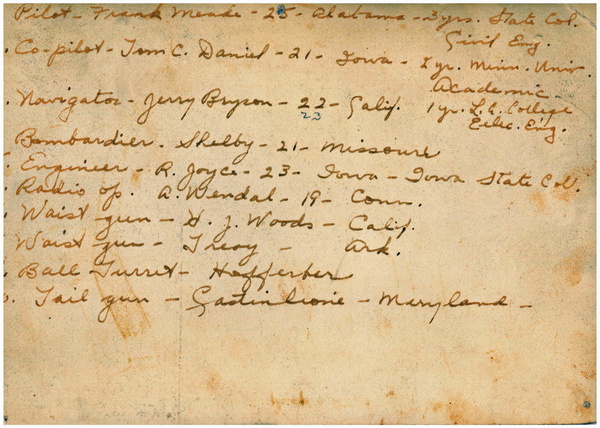 Pilot - Frank Meade - 25 - Alabama - 3 yrs. State Col.
Civil Eng.
Co-pilot - Tom C. Daniel - 21 - Iowa - 1 yr. Minn. Univ.
Academic
Navigator - Jerry Bryson - 22 - Calif. 1 yr. L.A. College
23 Elec. Eng.
Bombardier. Shelby - 21 - Missouri
Engineer - R. Joyce - 23 - Iowa - Iowa State Col.
Radio op. A. Wendal - 19 - Conn.
Waist gun - H. J. Woods - Calif.
Waist gun - Treoy - Ark.
Ball Turret - Hefferber
Tail gun - - Maryland -